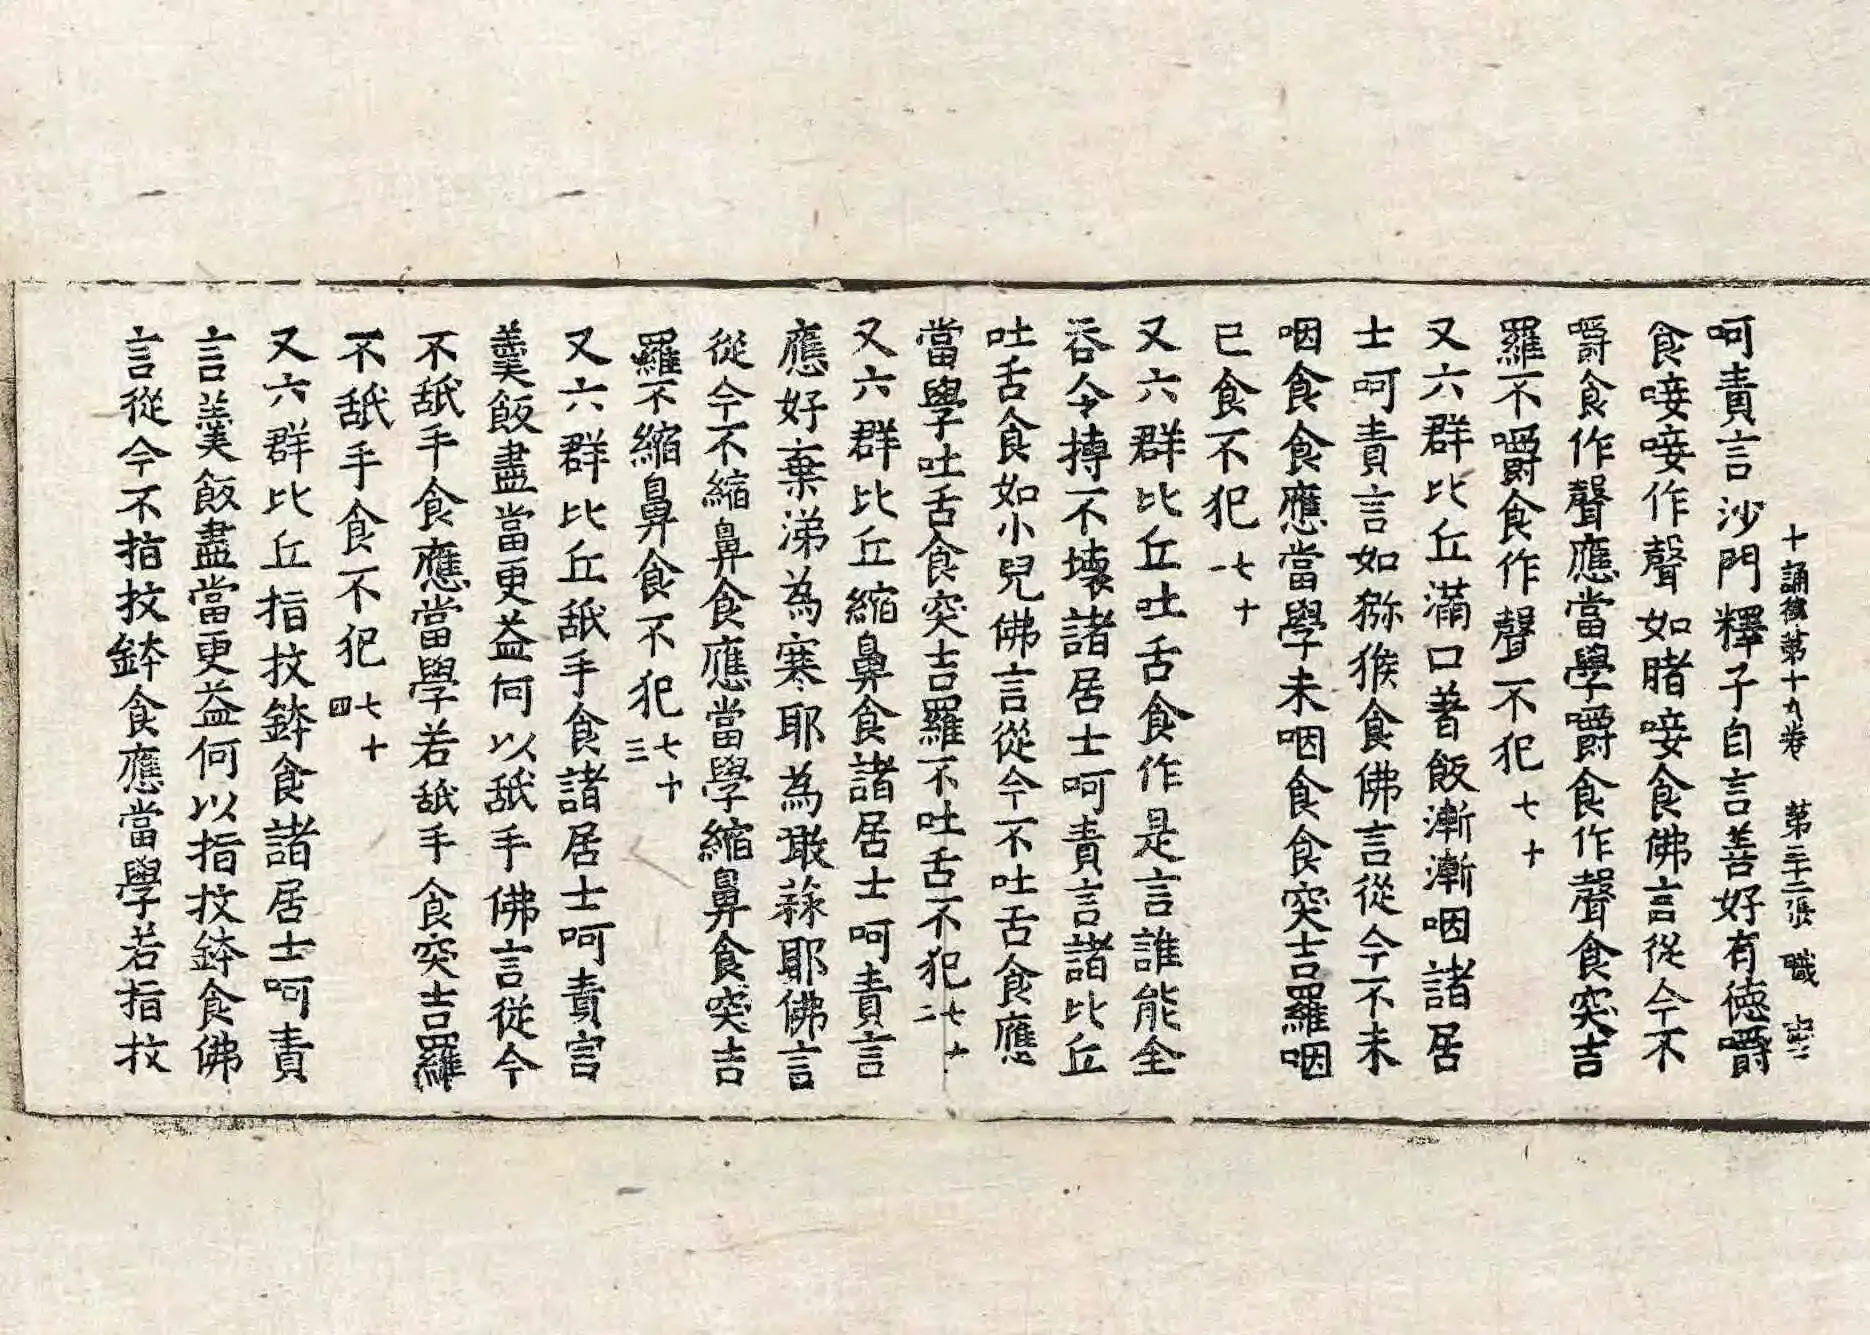 十誦律第十九卷　第三十二張　職
呵責言沙門釋子自言善好有德嚼
食唼唼作聲如賭唼食佛言從今不
嚼食作聲應當學嚼食作聲食突吉
羅不嚼食作聲不犯七十
又六群比丘滿口著飯漸漸咽諸居
士呵責言如獼猴食佛言從今不未
咽食食應當學未咽食食突吉羅咽
已食不犯七十一
又六群比丘吐舌食作是言誰能全
吞令摶不壞諸居士呵責言諸比丘
吐舌食如小兒佛言從今不吐舌食應
當學吐舌食突吉羅不吐舌不犯七十二
又六群比丘縮鼻食諸居士呵責言
應好棄涕為寒耶為噉蒜耶佛言
從今不縮鼻食應當學縮鼻食突吉
羅不縮鼻食不犯七十三
又六群比丘舐手食諸居士呵責言
羹飯盡當更益何以舐手佛言從今
不舐手食應當學若舐手食突吉羅
不舐手食不犯七十四
又六群比丘指抆鉢食諸居士呵責
言羹飯盡當更益何以指抆鉢食佛
言從今不指抆鉢食應當學若指抆